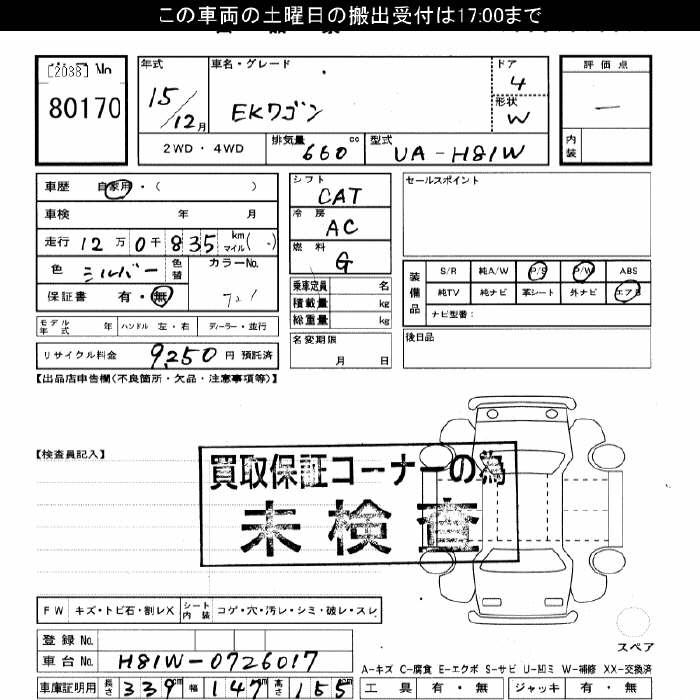 この車両の土曜日の搬出受付は17:00まで
[2038] No
80170
年式 車名・グレード ドア 評価点
15/12月 EKワゴン 4
形状 W
2WD・4WD 排気量 660 cc 型式 UA-H81W
内装
車歴 自家用・( )
車検 年 月
走行 12万0千835 km マイル( )
色 シルバー 色替 カラーNo.
保証書 有・無
モデル年式 年 ハンドル 左・右 ディーラー・並行
リサイクル料金 9,250 円 預託済
シフト CAT
冷房 AC
燃料 G
乗車定員 名
積載量 kg
総重量 kg
名変期限
月 日
セールスポイント
装備品
S/R 純A/W P/S P/W ABS
純TV 純ナビ 革シート 外ナビ エアB
ナビ型番:
後日品
【出品店申告欄(不良箇所・欠品・注意事項等)】
【検査員記入】
買取保証コーナーの為
未検査
FW キズ・トビ石・割レX シート内装 コゲ・穴・汚レ・シミ・破レ・スレ
登録No.
車台No. H81W-0726017
車庫証明用 長さ 339cm 幅 147cm 高さ 155cm
スペア
A-キズ C-腐食 E-エクボ S-サビ U-凹ミ W-補修 XX-交換済
工具 有・無 ジャッキ 有・無